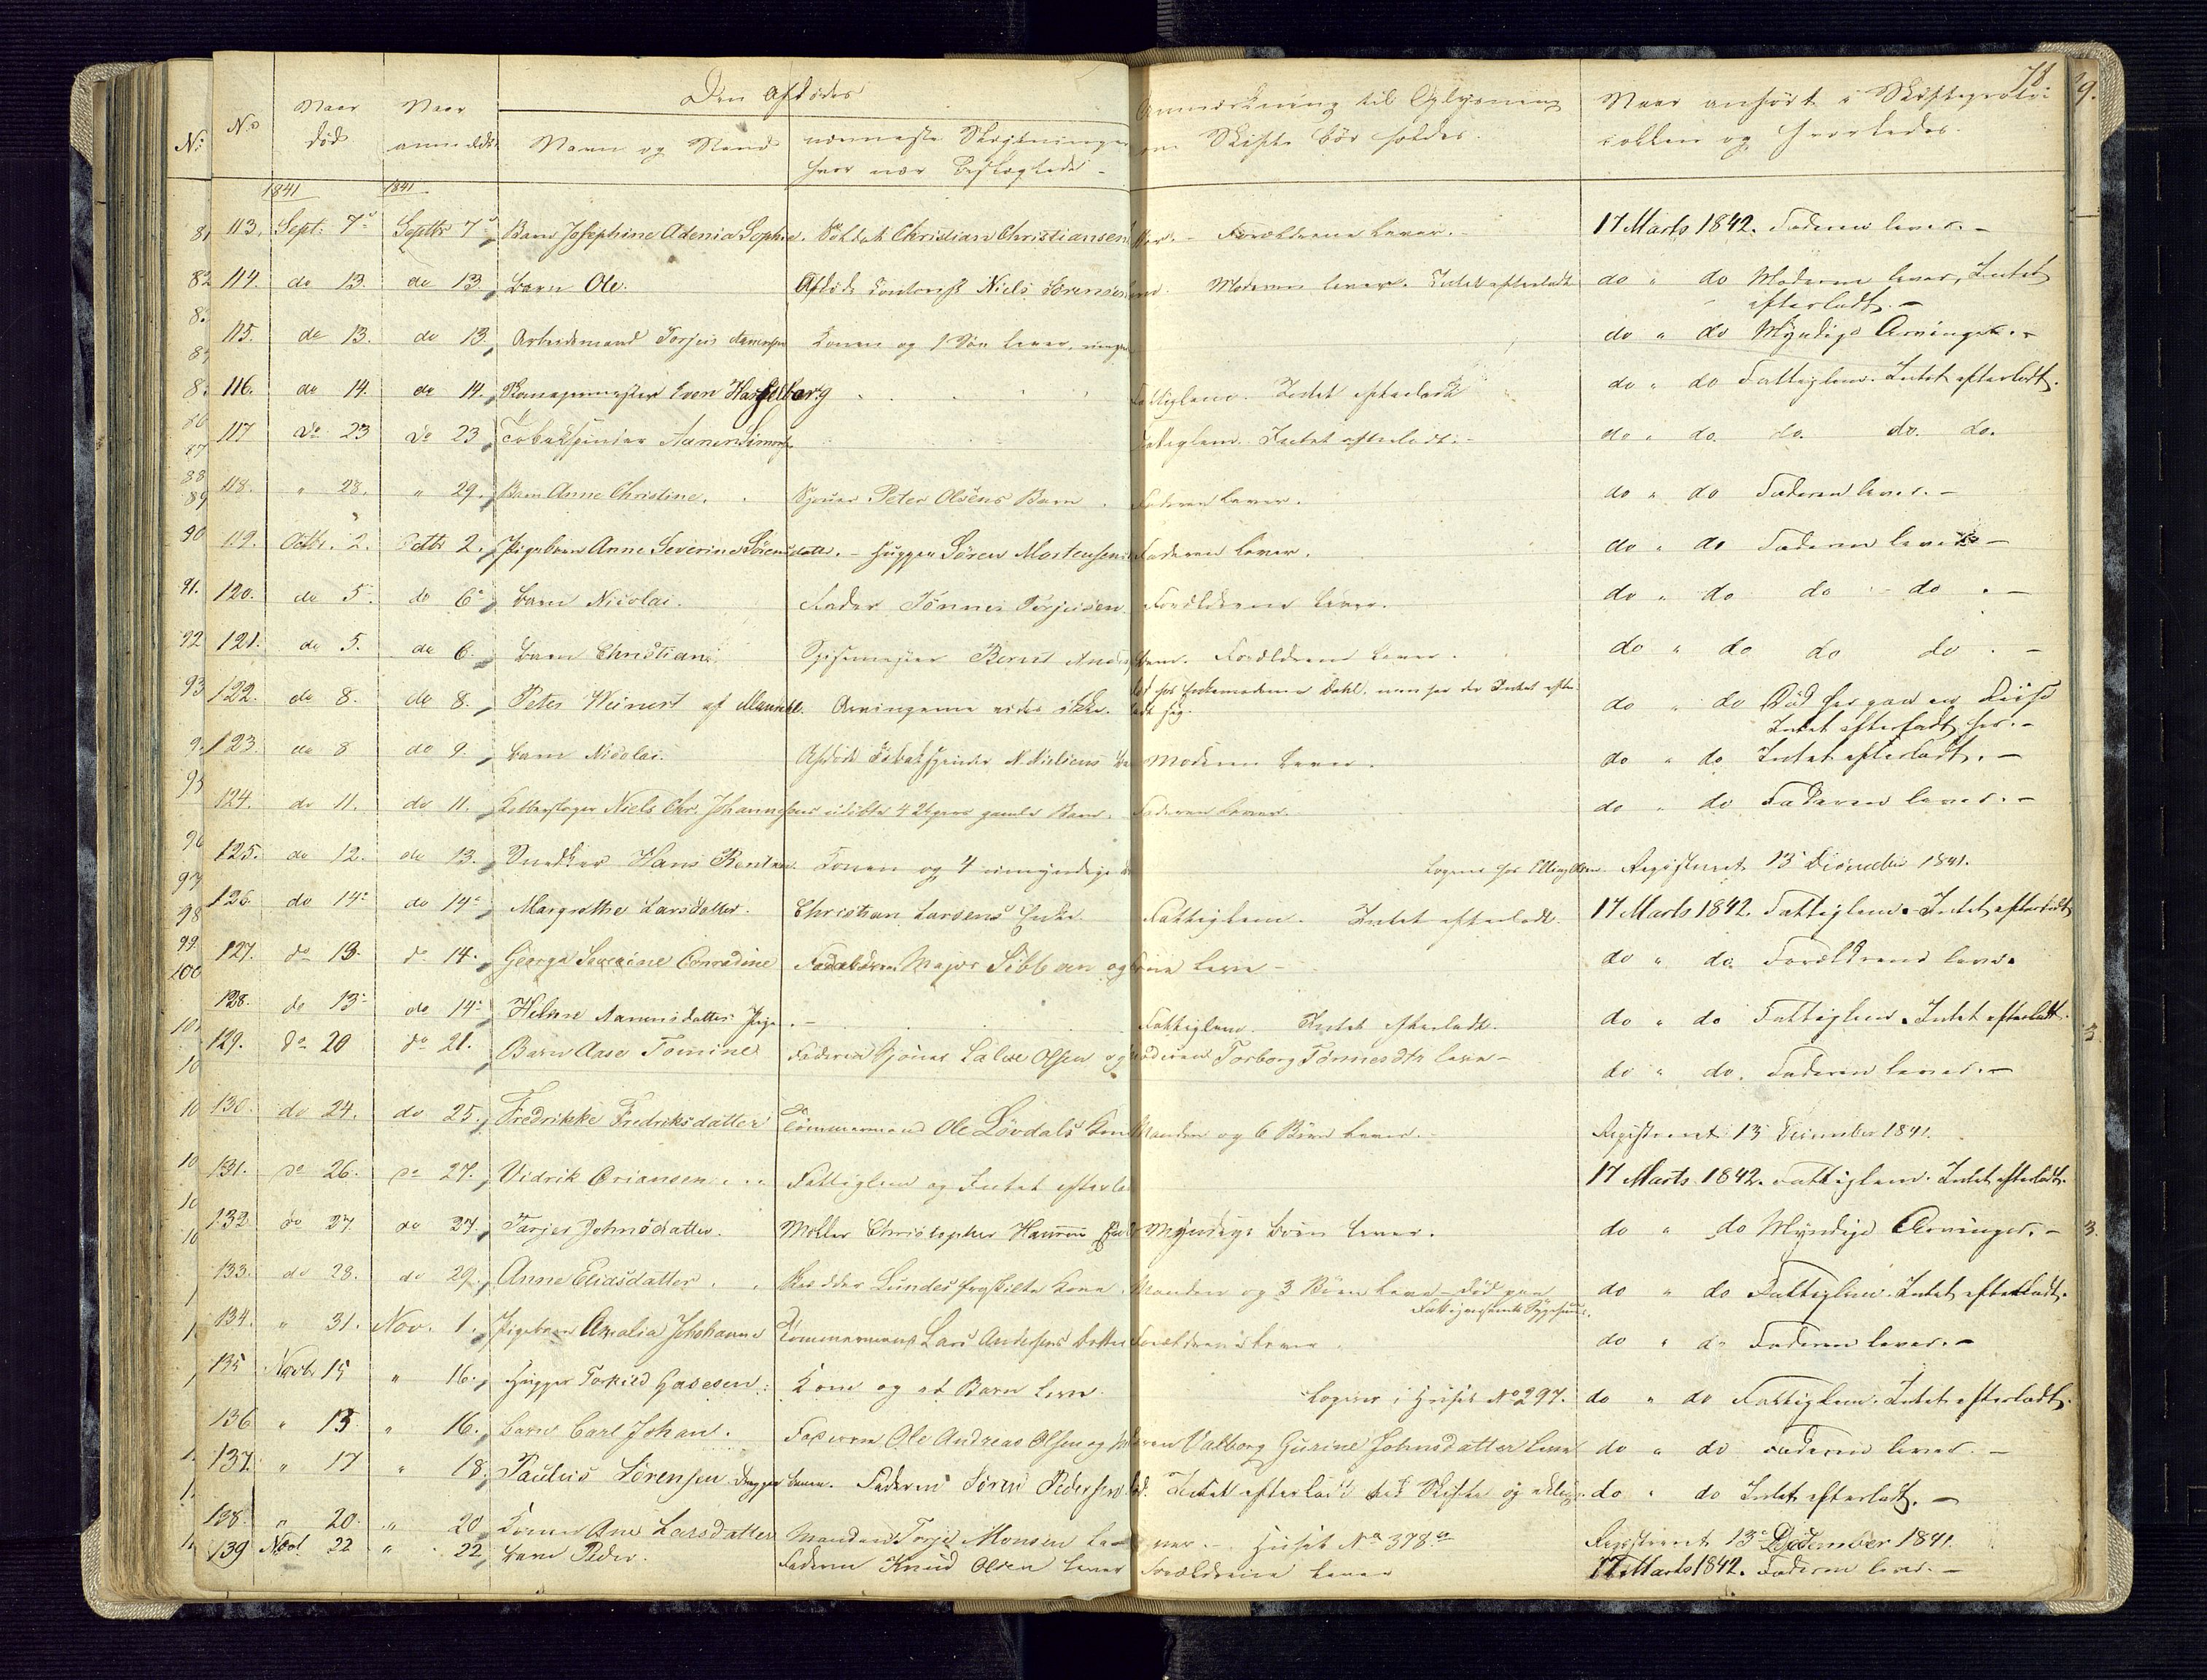 78
Den Afdødes
No
Naar død
Naar anmeldt
Navn og Stand
nærmeste Slægtninge hvor nær Beslægtede
Anmærkning til Oplysning om Skifte bør holdes.
Naar anført i Skifteprotocollen og hvorledes.
1841 1841
113. Sept. 7 Septbr 7 Barn Josephine Adenia Sophie. Soldat Christian Christiansen Forældrene lever. 17 Marts 1842. Faderen lever.
114. do 13. do 13 Barn Ole. Afdøde Contorist Niels Sørensen Moderen lever. Intet efterladt do " do Moderen lever, Intet
efterladt.
115. do 13. do 13. Arbeidsmand Torjus Konen og 1 Søn lever. do " do Myndige Arvinger.
116. do 14. do 14. Even Hasselberg Fattiglem. Intet efterladt do " do Fattiglem. Intet efterladt.
117 do 23 do 23 Tobakspinder Fattiglem. Intet efterladt. do " do. do. do. do.
118. " 28. " 29. Barn Anne Christine. Peter Olsens Barn. Faderen lever. do " do Faderen lever.
119. Octbr. 2. Octbr 2. Pigebarn Anne Severine Sørensdatter. Hugger Søren Mortensen Faderen lever. do " do Faderen lever
120. do 5. do 6 Barn Nicolai. Fader Tønnes Torjussen. Forældrene lever. do " do do do
121. do 5. do 6. Barn Christian. Berent Forældrene lever. do " do do do
122. do 8. do 8. Peter Weinert af Arvingerne vides ikke. Dahl. do " do Død her paa en Reise
Intet efterladt her.
123. do 8 do 9. Barn Nicolai. Afdøde Tobakspinder N. Nielsens Moderen lever. do " do Intet efterladt.
124. do 11. do 11. Niels Chr. Johannesens udøbte 4 Uger gamle Barn. Faderen lever. do " do Faderen lever.
125. do 12. do 13. Snedker Hans Konen og 4 umyndige Logerer hos Registreret 13 December 1841.
126. do 14 do 14 Margrethe Larsdatter. Christian Larsens Enke Fattiglem. Intet efterladt. 17 Marts 1842. Fattiglem. Intet efterladt
127. do 13. do 14. Georga Severine Conradine Forældrene Major Sibbern og lever do " do. Forældrene lever.
128. do 13 do 14 Helene Aanensdatter Pige Fattiglem. Intet efterladt. do " do Fattiglem. Intet efterladt.
129. do 20 do 21. Barn Aase Tomine Faderen Olsen og Moderen Torborg Tønnesdtr leve do " do. Faderen lever.
130. do 24. do 25. Fredrikke Fredriksdatter Tømmermand Ole Løvdals Kone Manden og 6 Børn lever. Registreret 13 December 1841.
131. do 26. do 27. Didrik Briansen Fattiglem og Intet efterladt 17 Marts 1842. Fattiglem. Intet efterladt.
132 do 27 do 27 Johnsdatter. Møller Christopher Enke Myndige Børn lever. do " do Myndige Arvinger.
133. do 28. do 29. Anne Eliasdatter. Lundes fraskilte Kone. Manden og 3 Børn leve død paa
do " do Fattiglem. Intet efterladt.
134. " 31. Nov. 1. Pigebarn Amalia Johanne Tømmermand Lars Andersens Datter Forældrene lever do " do Faderen lever.
135 Novbr 15 " 16. Hugger Torkild Gasesen. Kone og et Barn leve. Logerer i Huset No 297. do " do Fattiglem. Intet efterladt.
136 " 13 " 16. Barn Carl Johan. Faderen Ole Andreas Olsen og Moderen Valborg Gurine Johnsdatter leve do " do Faderen lever.
137. " 17 " 18. Paulus Sørensen Faderen Søren Pedersen død. Intet efterladt til Skifte do " do Intet efterladt.
138. " 20. " 20 Konen Ane Larsdatter Manden Torje Monsen lever. Huset No 378 a Registreret 13 December 1841.
139 Novb. 22 " 22 Barn Peder. Faderen Knud Olsen lever Forældrene lever 17 Marts 1842. Faderen lever.